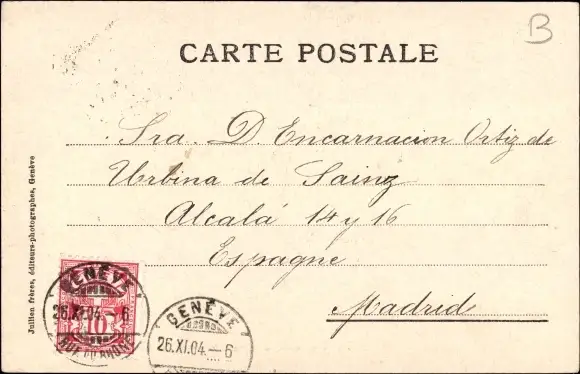 B
CARTE POSTALE
Sra. D. Encarnacion Ortiz de
Urbina de Sainz
Alcalá 14 y 16
Espagne
Madrid
Jullien frères, éditeurs-photographes, Genève
GENÈVE
26.XI.04.-6
RUE DU RHÔNE
10
GENÈVE
26.XI.04.-6